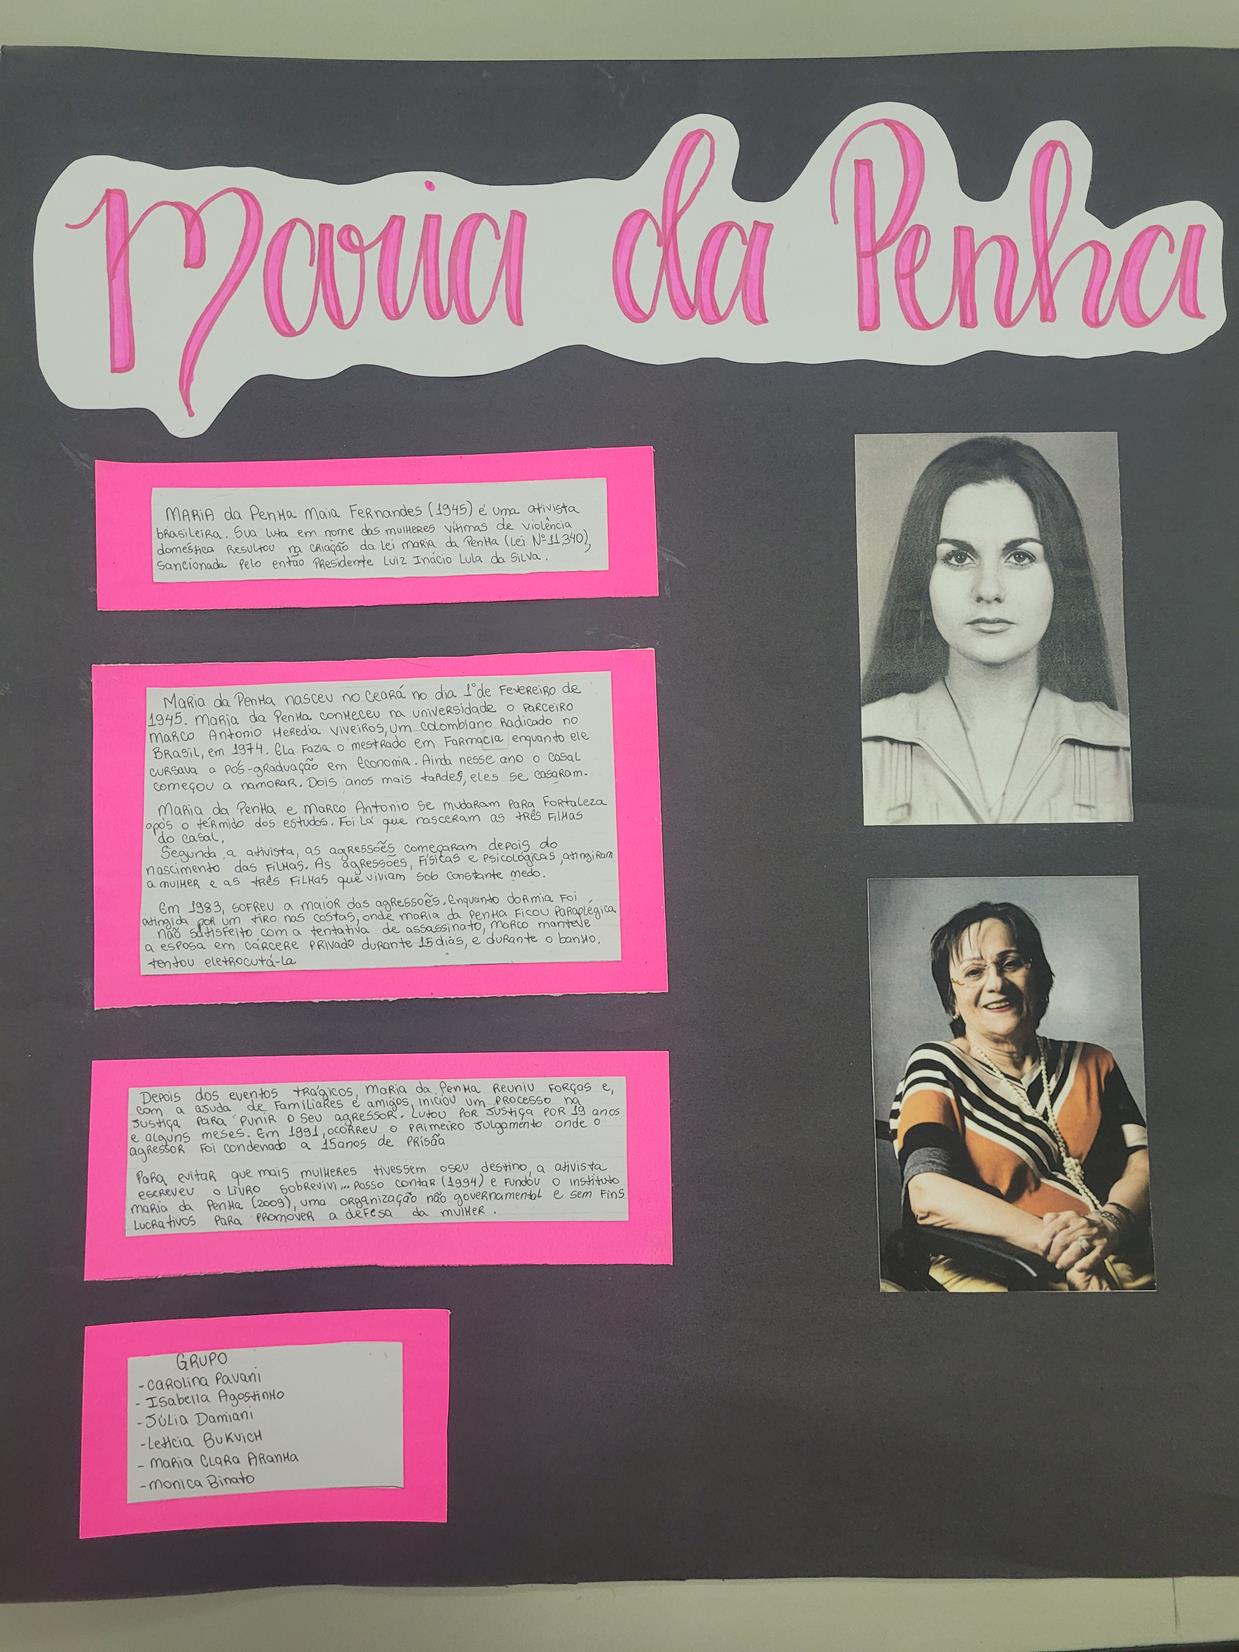 Maria da Penha
MARIA da Penha Maia Fernandes (1945) é uma ativista
brasileira. Sua luta em nome das mulheres vítimas de violência
doméstica resultou na criação da lei maria da Penha (Lei Nº 11340),
sancionada pelo então Presidente Luiz Inácio Lula da Silva.
Maria da Penha nasceu no Ceará no dia 1º de Fevereiro de
1945. Maria da Penha conheceu na universidade o parceiro
Marco Antonio Heredia Viveiros, um colombiano radicado no
Brasil, em 1974. Ela fazia o mestrado em Farmacia enquanto ele
cursava a pós-graduação em Economia. Ainda nesse ano o casal
começou a namorar. Dois anos mais tardes, eles se casaram.
Maria da Penha e Marco Antonio se mudaram para Fortaleza
após o término dos estudos. Foi lá que nasceram as três filhas
do casal.
Segundo a ativista, as agressões começaram depois do
nascimento das filhas. As agressões, físicas e psicológicas, atingiram
a mulher e as três filhas que viviam sob constante medo.
Em 1983, sofreu a maior das agressões. Enquanto dormia foi
atingida por um tiro nas costas, onde maria da Penha ficou paraplégica
não satisfeito com a tentativa de assassinato, marco manteve
a esposa em cárcere privado durante 15 dias, e durante o banho,
tentou eletrocutá-la
Depois dos eventos trágicos, Maria da Penha reuniu forças e,
com a ajuda de familiares e amigos, iniciou um processo na
justiça para punir o seu agressor. Lutou por justiça por 19 anos
e alguns meses. Em 1991, ocorreu o primeiro julgamento onde o
agressor foi condenado a 15 anos de prisão
Para evitar que mais mulheres tivessem o seu destino, a ativista
escreveu o livro Sobrevivi... Posso contar (1994) e fundou o instituto
maria da Penha (2009), uma organização não governamental e sem fins
lucrativos para promover a defesa da mulher.
GRUPO
- Carolina Pavani
- Isabella Agostinho
- Júlia Damiani
- Letícia Bukvich
- Maria Clara Aranha
- Monica Binato